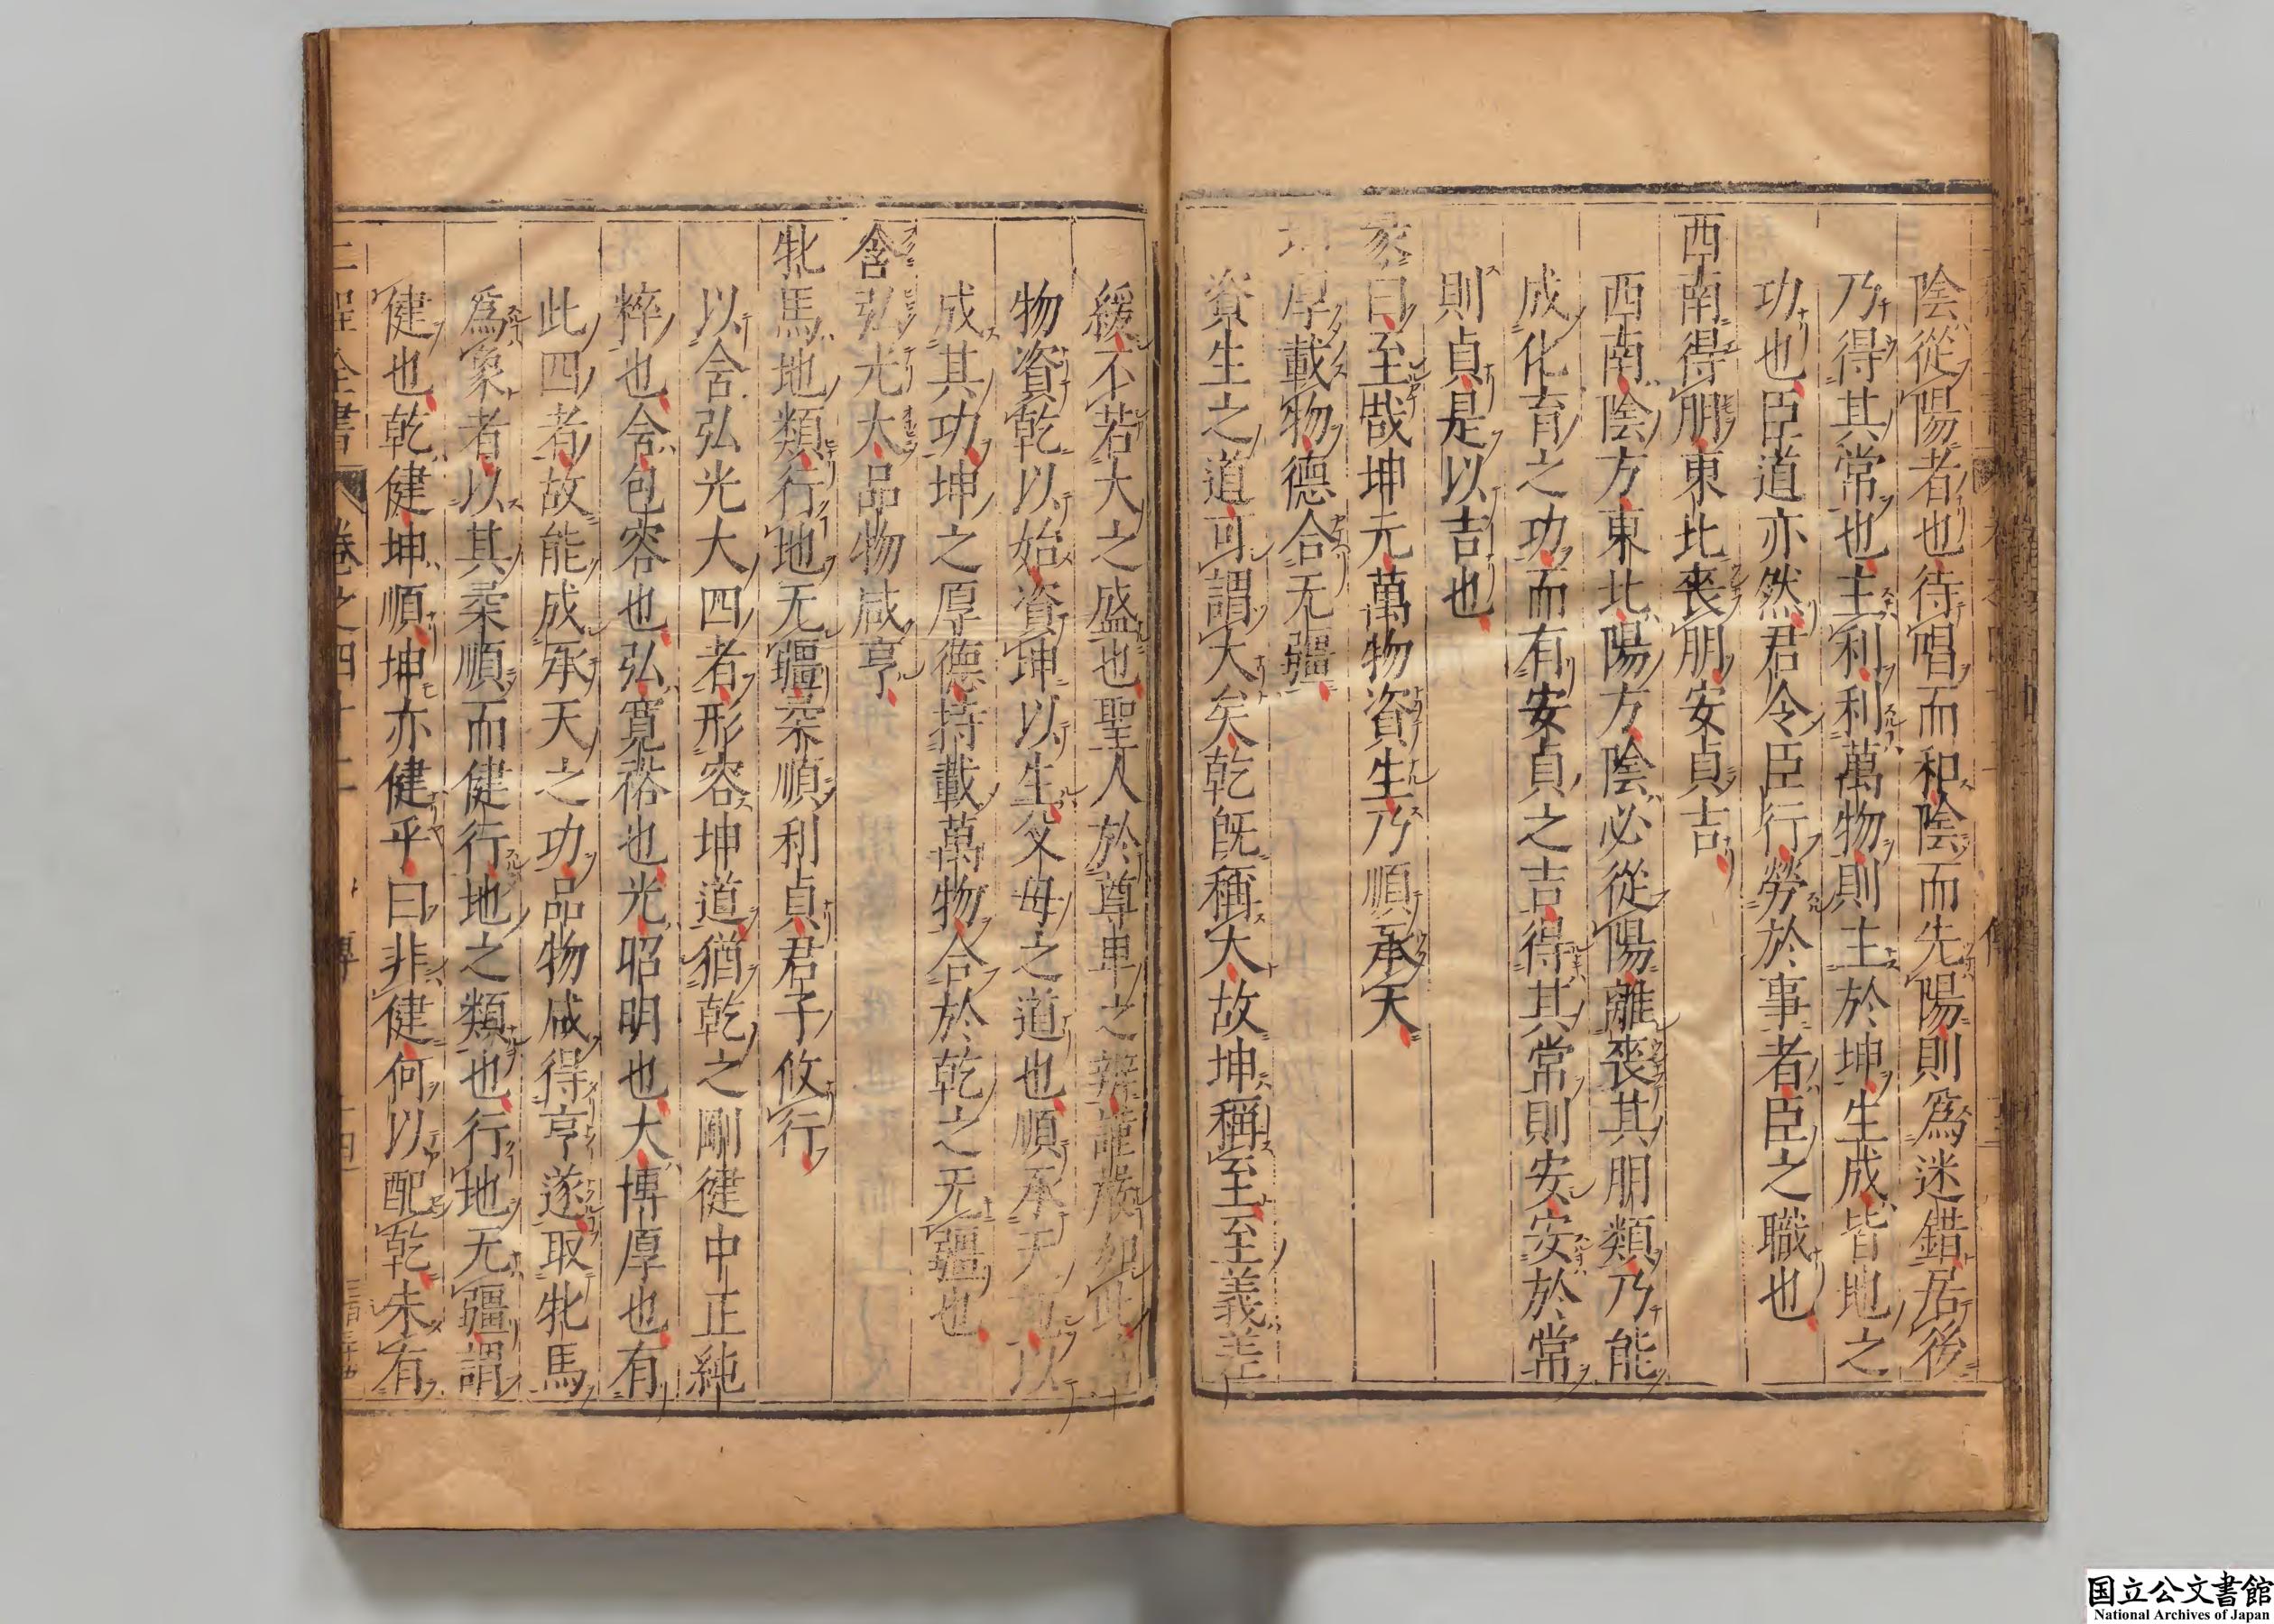 陰從陽者也待唱而和陰而先陽則爲迷錯居後
乃得其常也主利利萬物則主於坤生成皆地之
功也臣道亦然君令臣行勞於事者臣之職也
西南得朋東北喪朋安貞吉
西南陰方東北陽方陰必從陽離喪其朋類乃能
成化育之功而有安貞之吉得其常則安安於常
則貞是以吉也
彖曰至哉坤元萬物資生乃順承天
坤厚載物德合无疆
資生之道可謂大矣乾旣稱大故坤稱至至義差
緩不若大之盛也聖人於尊卑之辨謹嚴如此
物資乾以始資坤以生父母之道也順承天以
成其功坤之厚德持載萬物合於乾之无疆也
含弘光大品物咸亨
牝馬地類行地无疆柔順利貞君子攸行
以含弘光大四者形容坤道猶乾之剛健中正純
粹也含包容也弘寬裕也光昭明也大博厚也有
此四者故能成承天之功品物咸得亨遂取牝馬
爲象者以其柔順而健行地之類也行地无疆謂
健也乾健坤順坤亦健乎曰非健何以配乾未有
二程全書
卷之四十二
傳
国立公文書館
National Archives of Japan